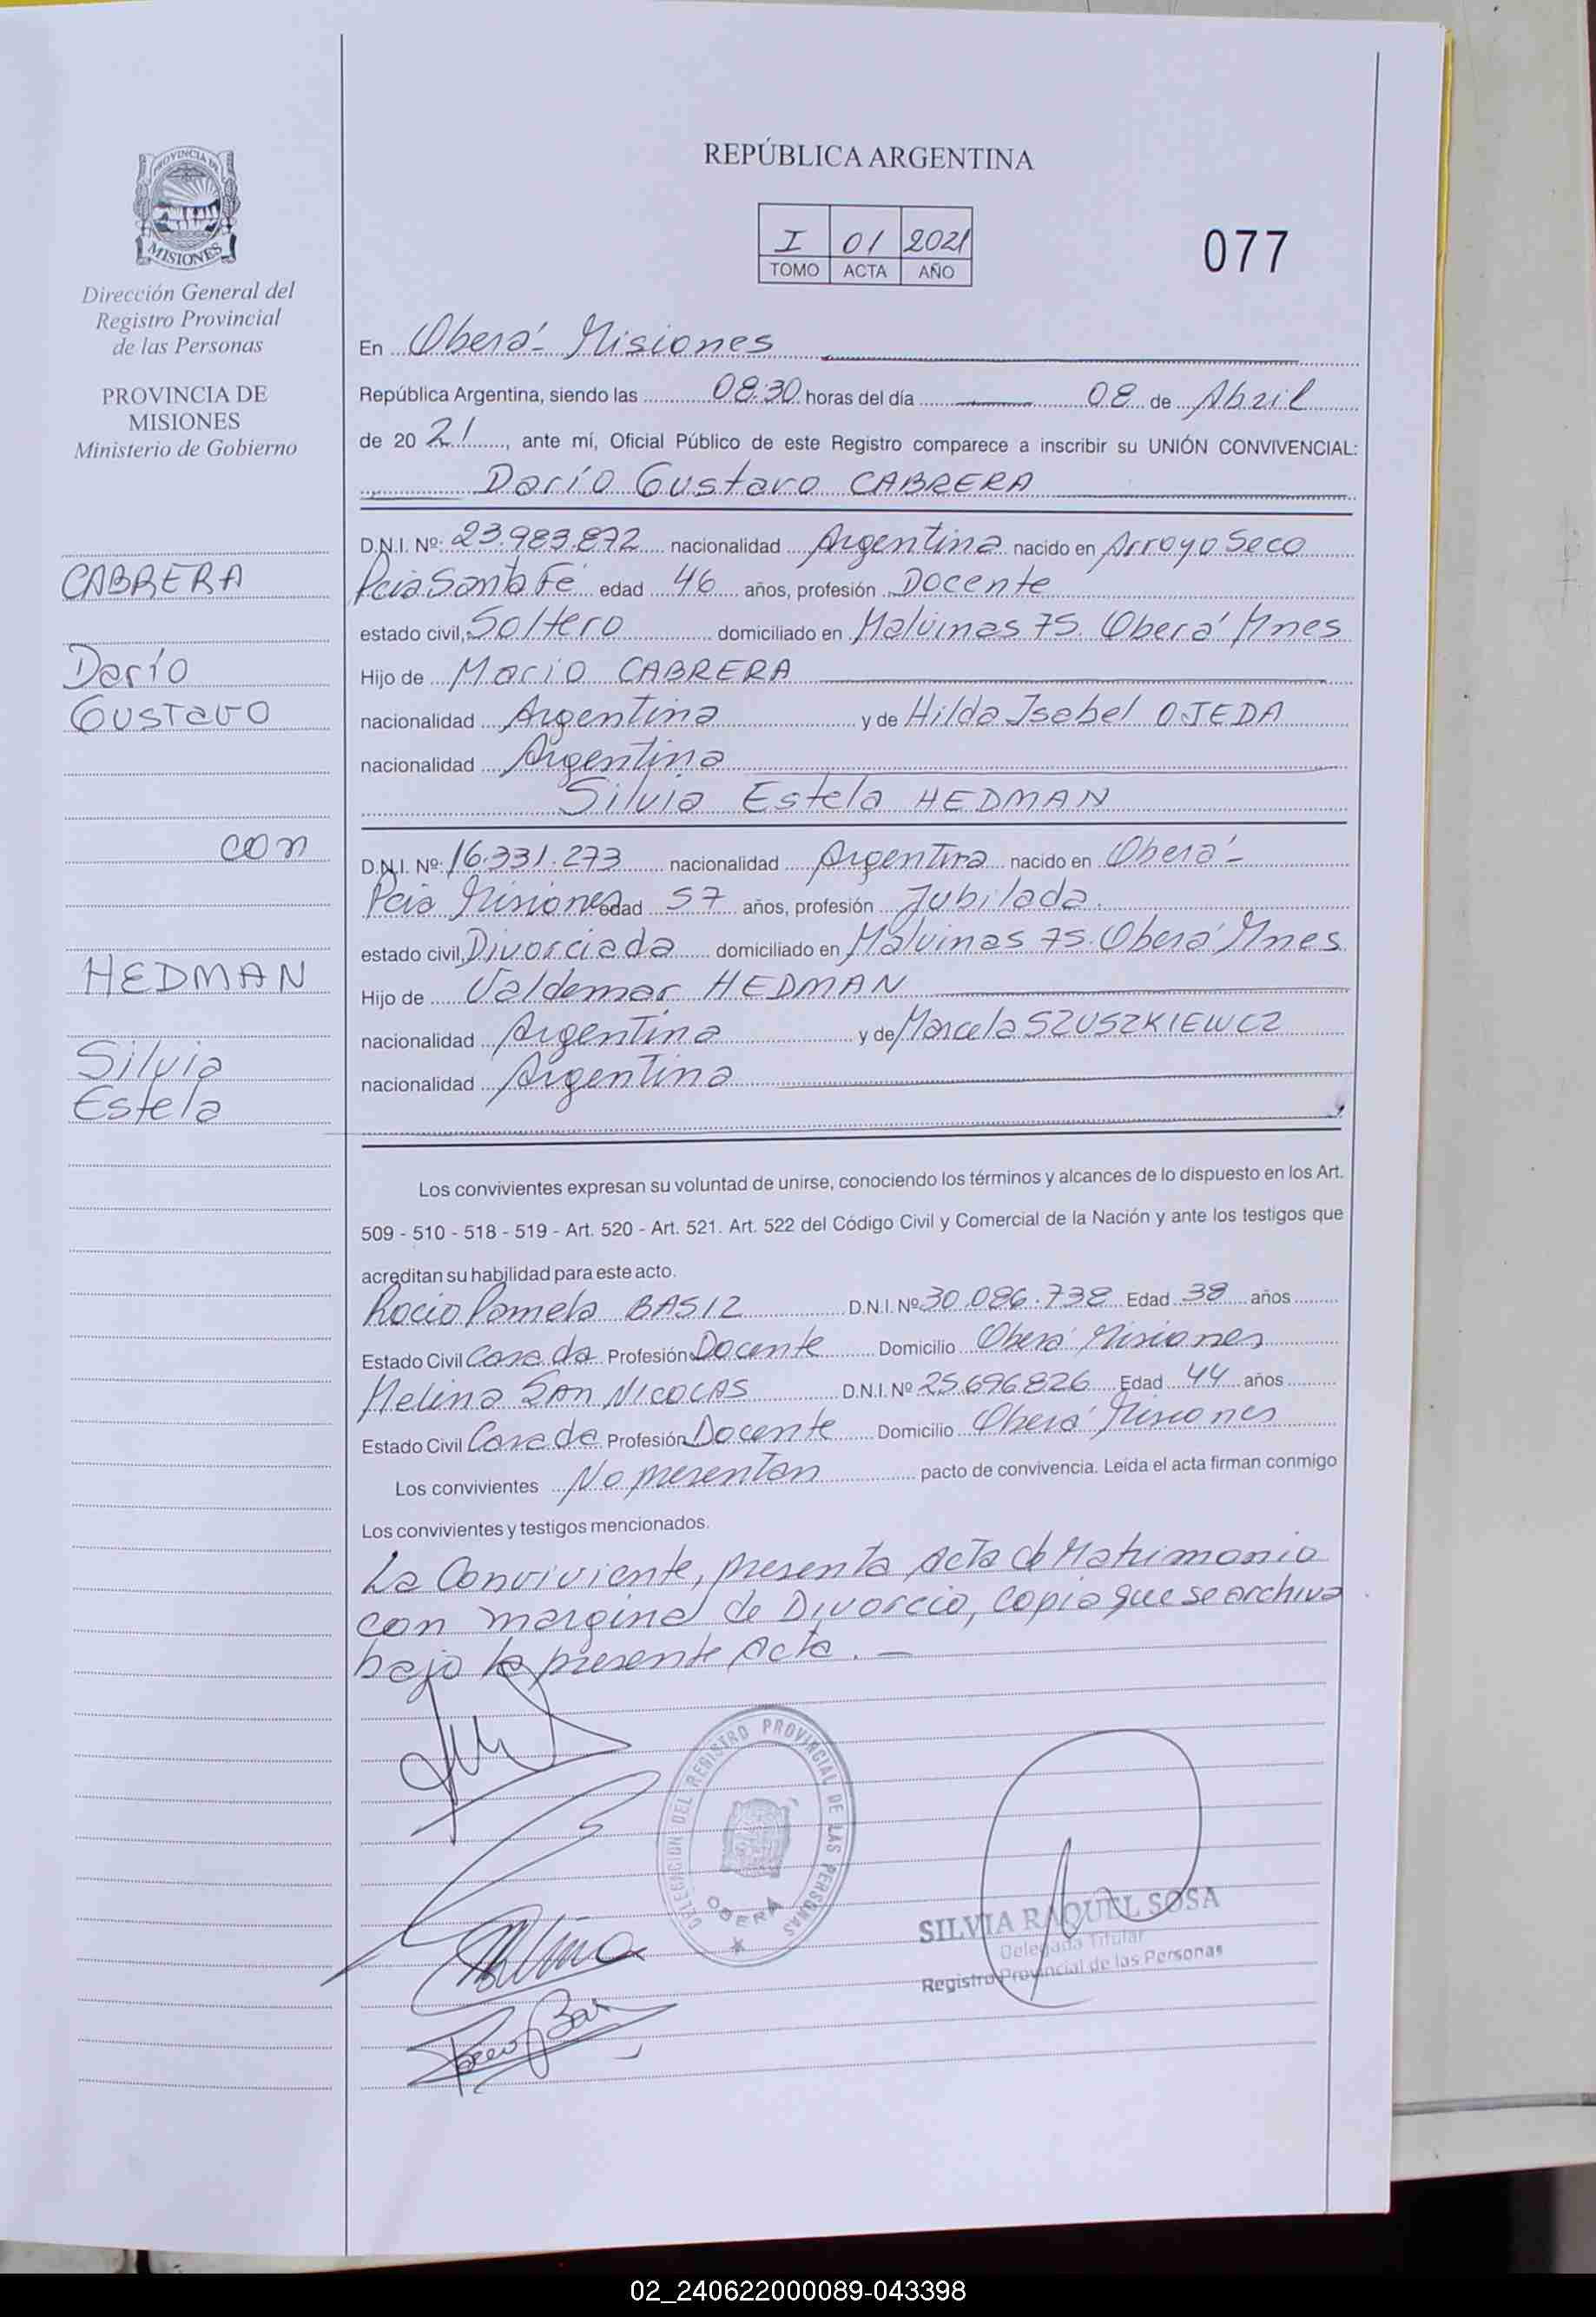 PROVINCIA DE
MISIONES
Dirección General del
Registro Provincial
de las Personas
PROVINCIA DE
MISIONES
Ministerio de Gobierno
CABRERA
Darío
Gustavo
con
HEDMAN
Silvia
Estela
REPÚBLICA ARGENTINA
I 01 2021
TOMO ACTA AÑO
077
En Oberá - Misiones
República Argentina, siendo las 08:30 horas del día 08 de Abril
de 20 21, ante mí, Oficial Público de este Registro comparece a inscribir su UNIÓN CONVIVENCIAL:
Darío Gustavo CABRERA
D.N.I. Nº: 23.983.872 nacionalidad Argentina nacido en Arroyo Seco
Pcia Santa Fé edad 46 años, profesión Docente
estado civil, Soltero domiciliado en Malvinas 75 Oberá Mnes
Hijo de Mario CABRERA
nacionalidad Argentina y de Hilda Isabel OJEDA
nacionalidad Argentina
Silvia Estela HEDMAN
D.N.I. Nº: 16.331.273 nacionalidad Argentina nacido en Oberá -
Pcia Misiones edad 57 años, profesión Jubilada.
estado civil, Divorciada domiciliado en Malvinas 75. Oberá Mnes
Hijo de Valdemar HEDMAN
nacionalidad Argentina y de Marcela SZUSZKIEWCZ
nacionalidad Argentina
Los convivientes expresan su voluntad de unirse, conociendo los términos y alcances de lo dispuesto en los Art.
509 - 510 - 518 - 519 - Art. 520 - Art. 521. Art. 522 del Código Civil y Comercial de la Nación y ante los testigos que
acreditan su habilidad para este acto.
Rocio Pamela BASIZ D.N.I. Nº 30.086.738 Edad 38 años
Estado Civil Casada Profesión Docente Domicilio Oberá Misiones
Melina SAN NICOLAS D.N.I. Nº 25.696.826 Edad 44 años
Estado Civil Casada Profesión Docente Domicilio Oberá Misiones
Los convivientes No presentan pacto de convivencia. Leída el acta firman conmigo
Los convivientes y testigos mencionados.
La Conviviente, presenta Acta de Matrimonio
con marginal de Divorcio, copia que se archiva
bajo la presente Acta. -
DELEGACION DEL REGISTRO PROVINCIAL DE LAS PERSONAS
OBERA
SILVIA RAQUEL SOSA
Delegada Titular
Registro Provincial de las Personas
02_240622000089-043398